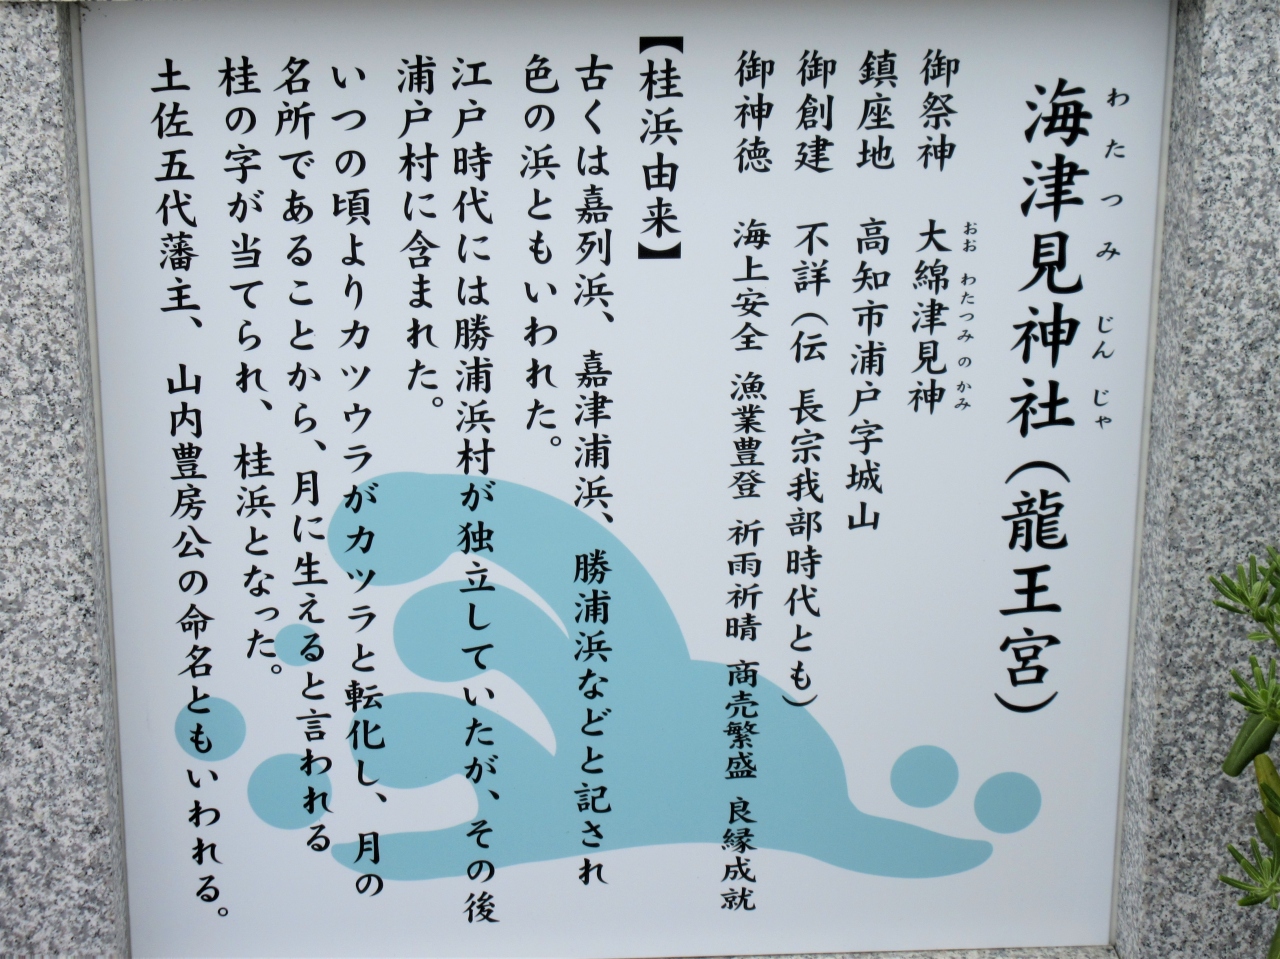 海津見神社(龍王宮)
わたつみ じんじゃ
御祭神 大綿津見神
おお わたつみ の かみ
鎮座地 高知市浦戸字城山
御創建 不詳(伝 長宗我部時代とも)
御神徳 海上安全 漁業豊登 祈雨祈晴 商売繁盛 良縁成就
【桂浜由来】
古くは嘉列浜、嘉津浦浜、勝浦浜などと記され
色の浜ともいわれた。
江戸時代には勝浦浜村が独立していたが、その後
浦戸村に含まれた。
いつの頃よりカツウラがカツラと転化し、月の
名所であることから、月に生えると言われる
桂の字が当てられ、桂浜となった。
土佐五代藩主、山内豊房公の命名ともいわれる。